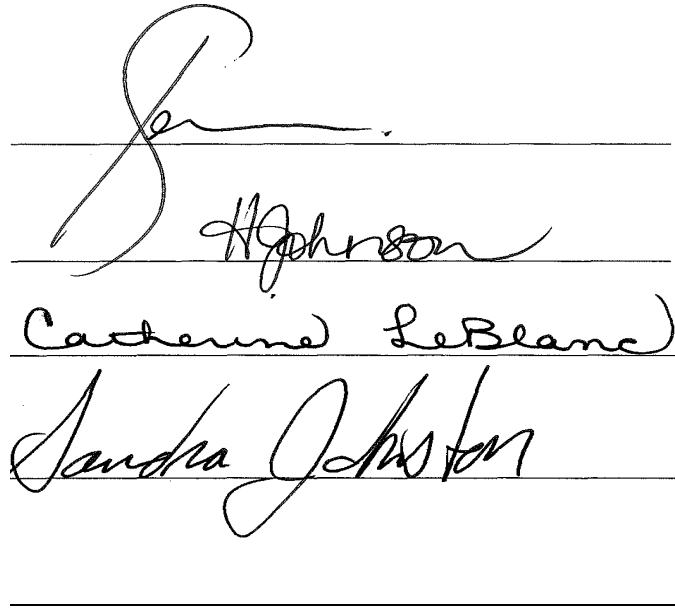 H Johnson
Catherine LeBlanc
Sandra Johnston